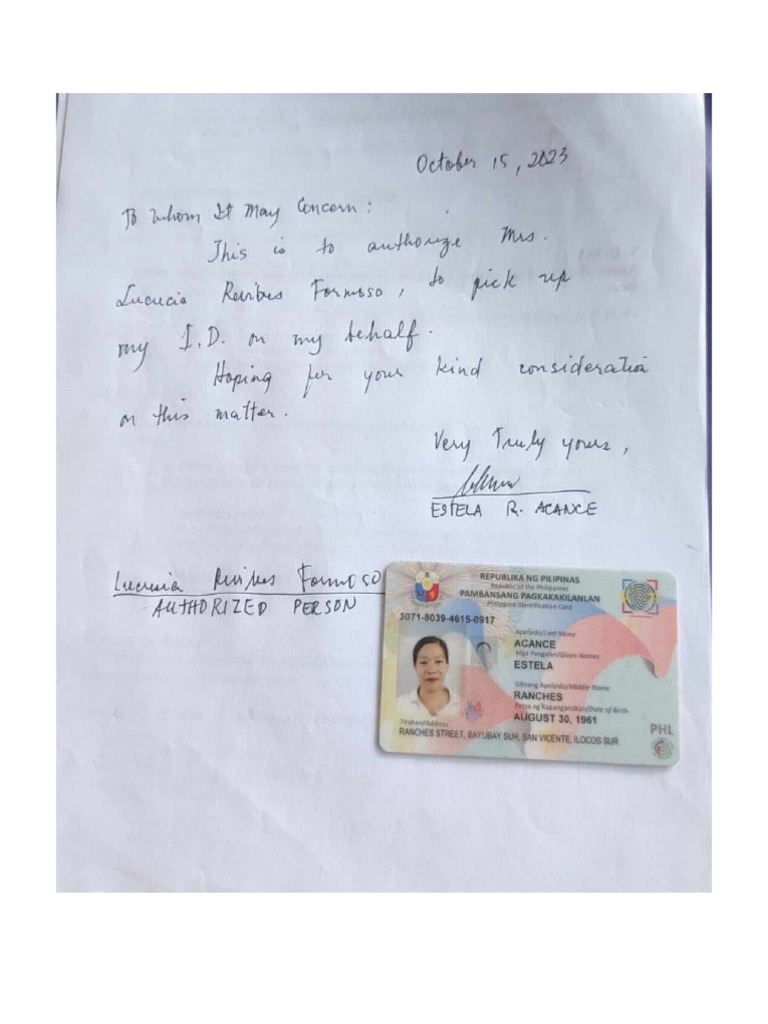 October 15, 2023
To Whom It May Concern:
This is to authorize Mrs.
Lucucia Revibes Formoso, to pick up
my I.D. on my behalf.
Hoping for your kind consideration
on this matter.
Very Truly yours,
ESTELA R. ACANCE
Formoso
AUTHORIZED PERSON
REPUBLIKA NG PILIPINAS
Republic of the Philippines
PAMBANSANG PAGKAKAKILANLAN
Philippine Identification Card
3071-8039-4615-0917
Apelyido/Last Name
ACANCE
Mga Pangalan/Given Names
ESTELA
Gitnang Apelyido/Middle Name
RANCHES
Petsa ng Kapanganakan/Date of Birth
AUGUST 30, 1961
PHL
Tirahan/Address
RANCHES STREET, BAYUBAY SUR, SAN VICENTE, ILOCOS SUR